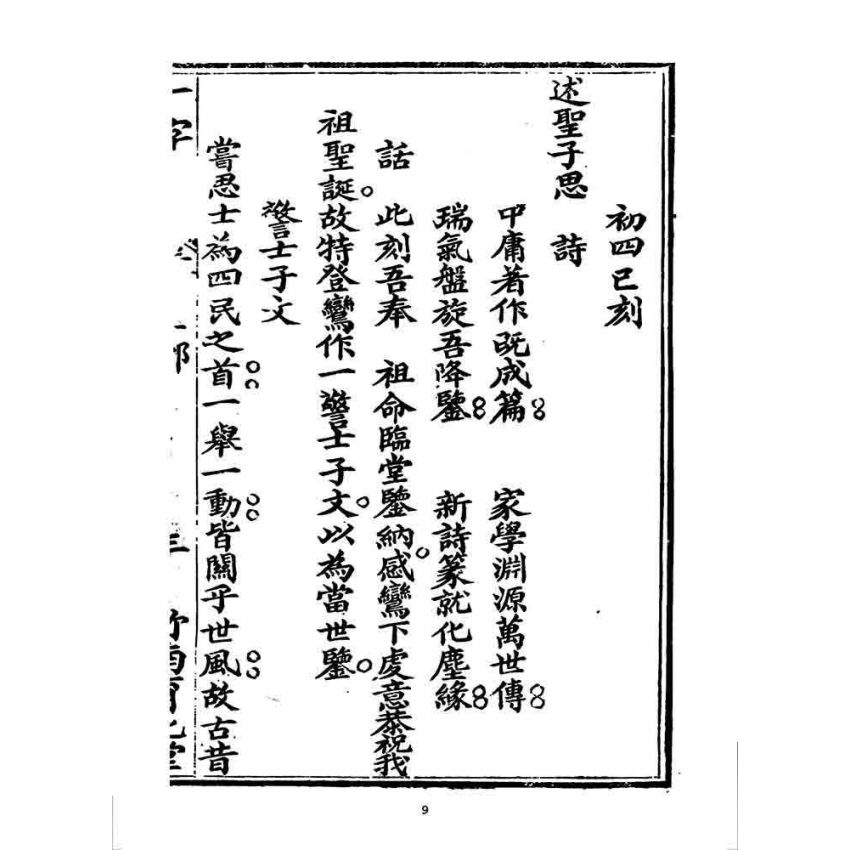 初四巳刻
述聖子思　詩
中庸著作既成篇　家學淵源萬世傳
瑞氣盤旋吾降鑒　新詩篆就化塵緣
話　此刻吾奉　祖命臨堂鑒納。感鸞下處意恭祝我
祖聖誕。故特登鸞作一警士子文。以為當世鑒。
警士子文
嘗思士為四民之首一舉一動皆關乎世風故古昔
9